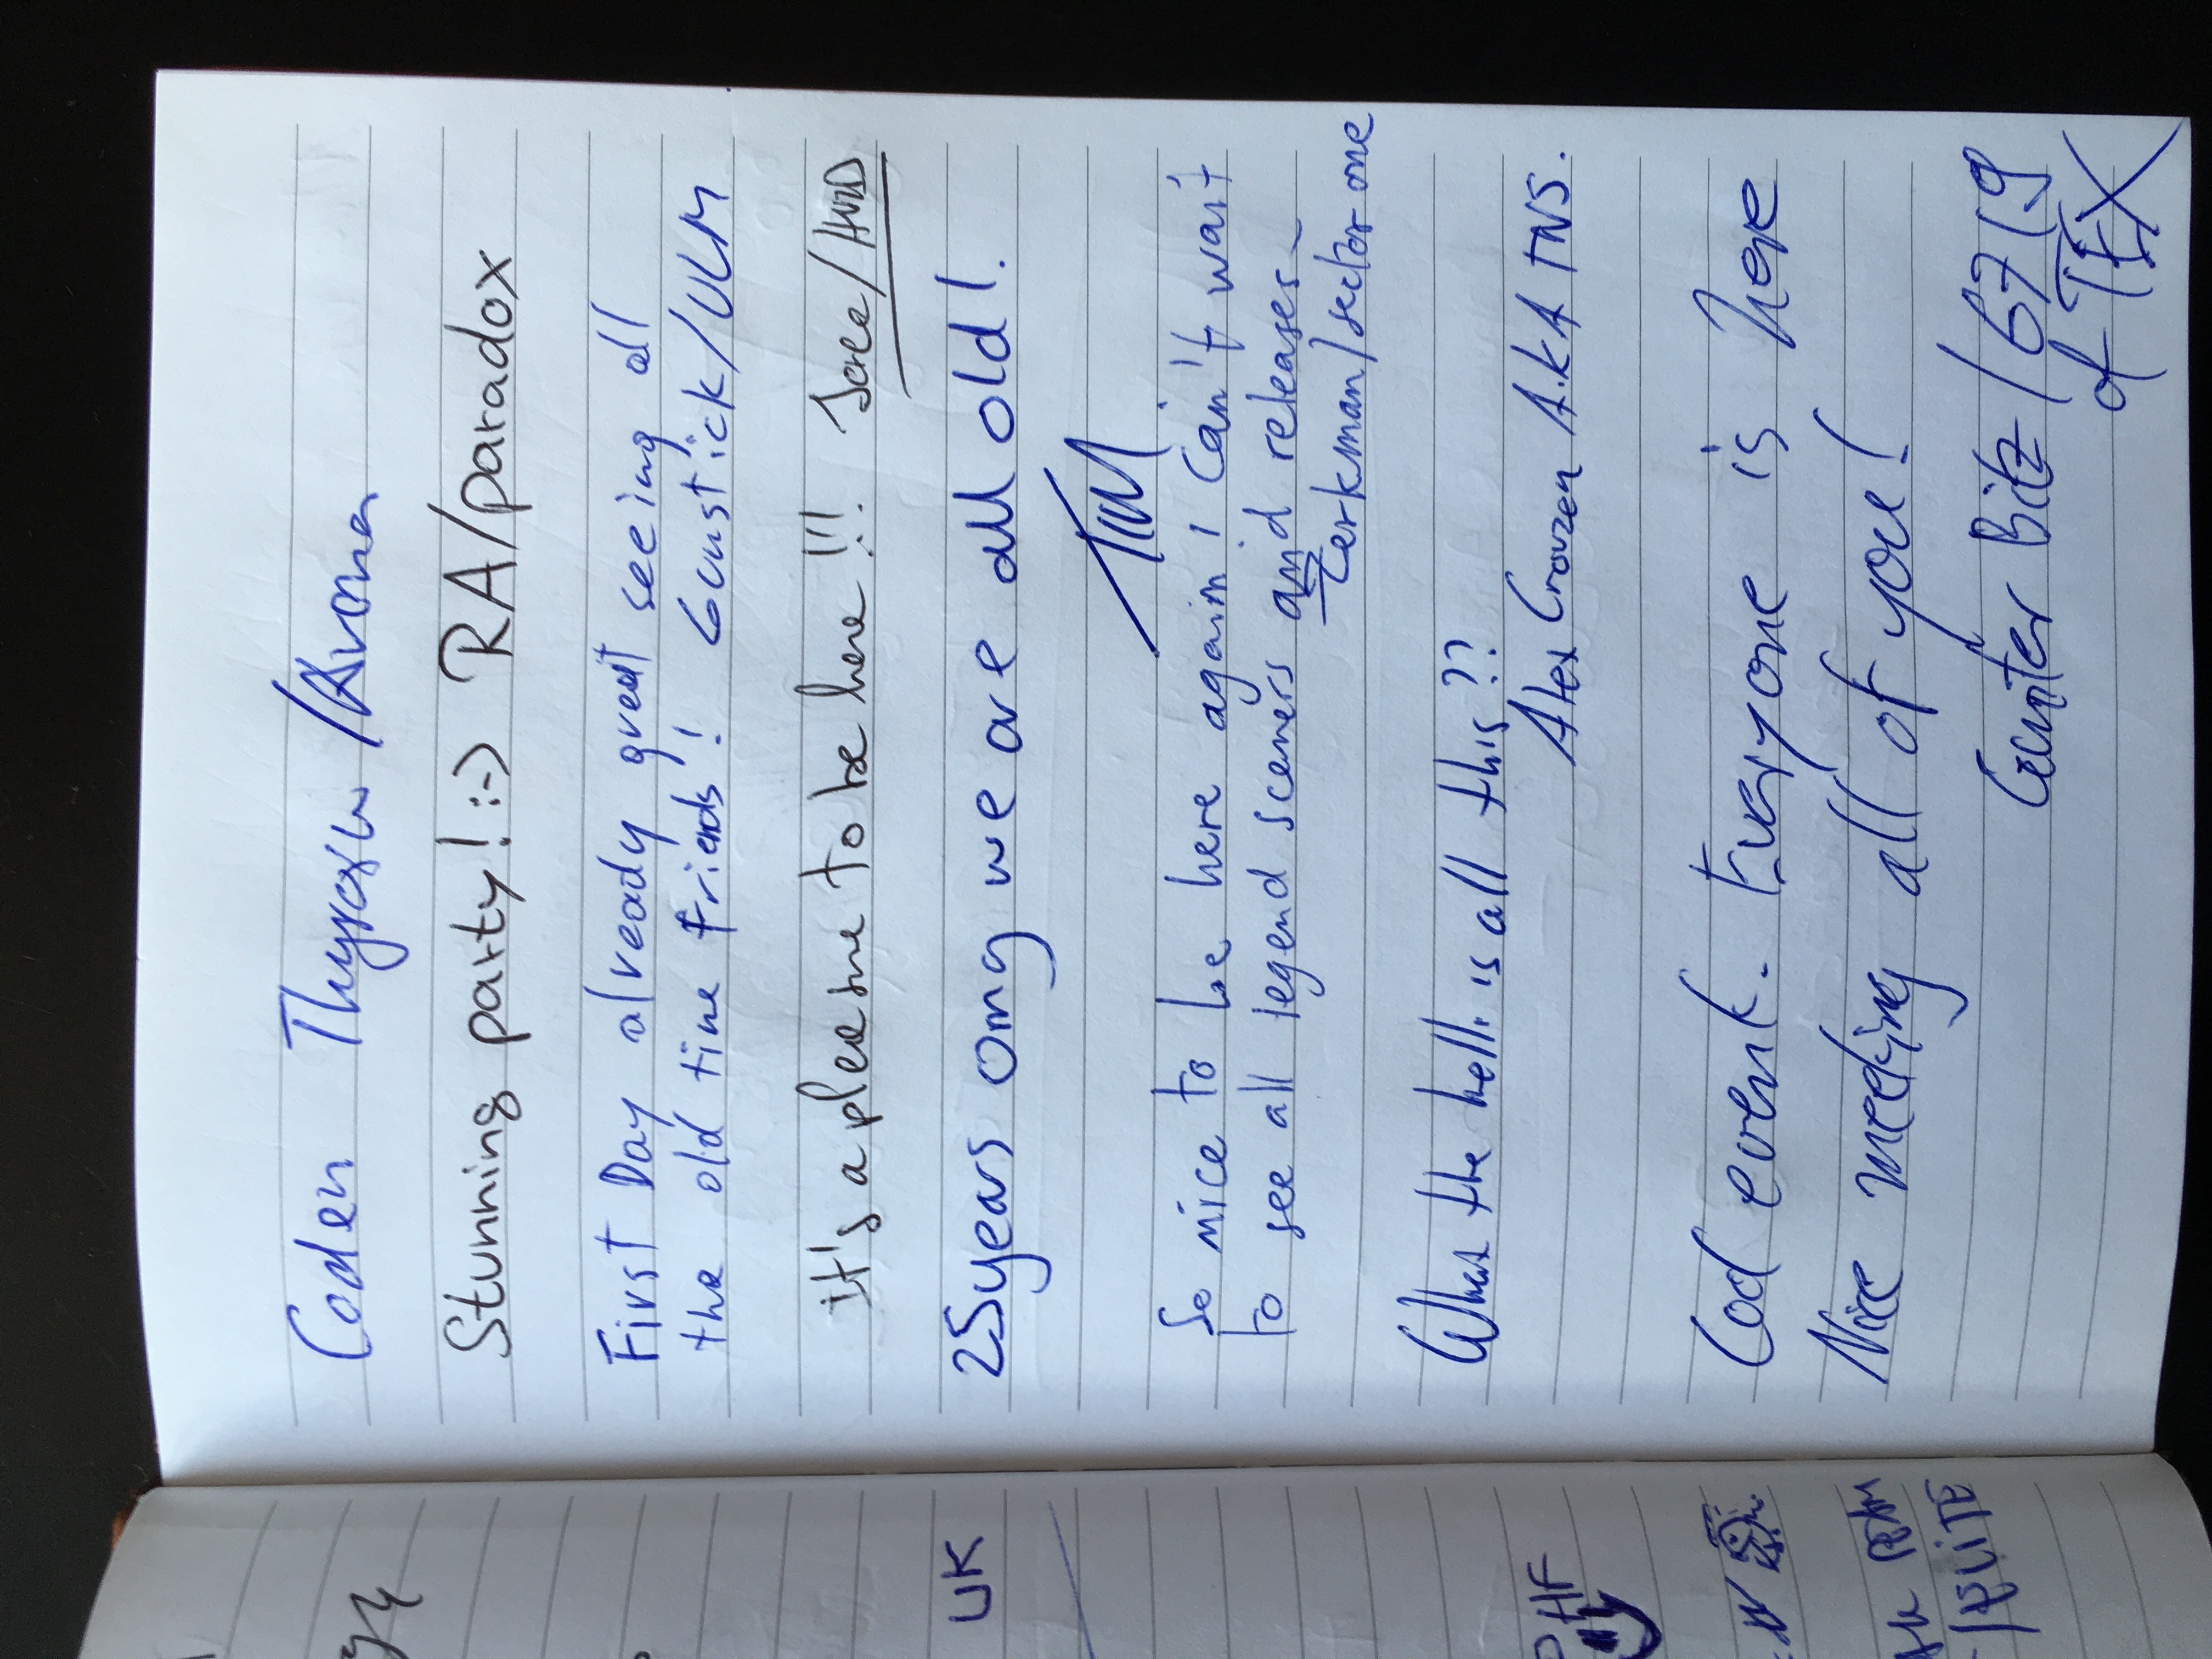 Coden
Stunning party! :-) RA/paradox
First Day already great seeing all
the old time friends! Gunstick/ULM
it's a pleasure to be here!!!.
25years omg we are all old!.
TIM
So nice to be here again i can't wait
to see all legend sceners and releases
erkman/sector one
What the hell. is all this??
Alex Crouzen A.K.A TNS.
Cool event. Everyone is here
Nice meeting all of you!
Gunter Bitz / 6719
of TEX
UK